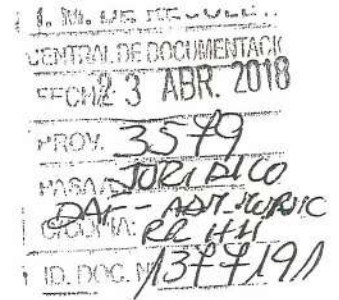 I. M. DE
CENTRAL DE DOCUMENTACI
FECHA 23 ABR. 2018
PROV. 3579
PASA A JURIDICO
DAF - ADM.
RRHH
ID. DOC. N